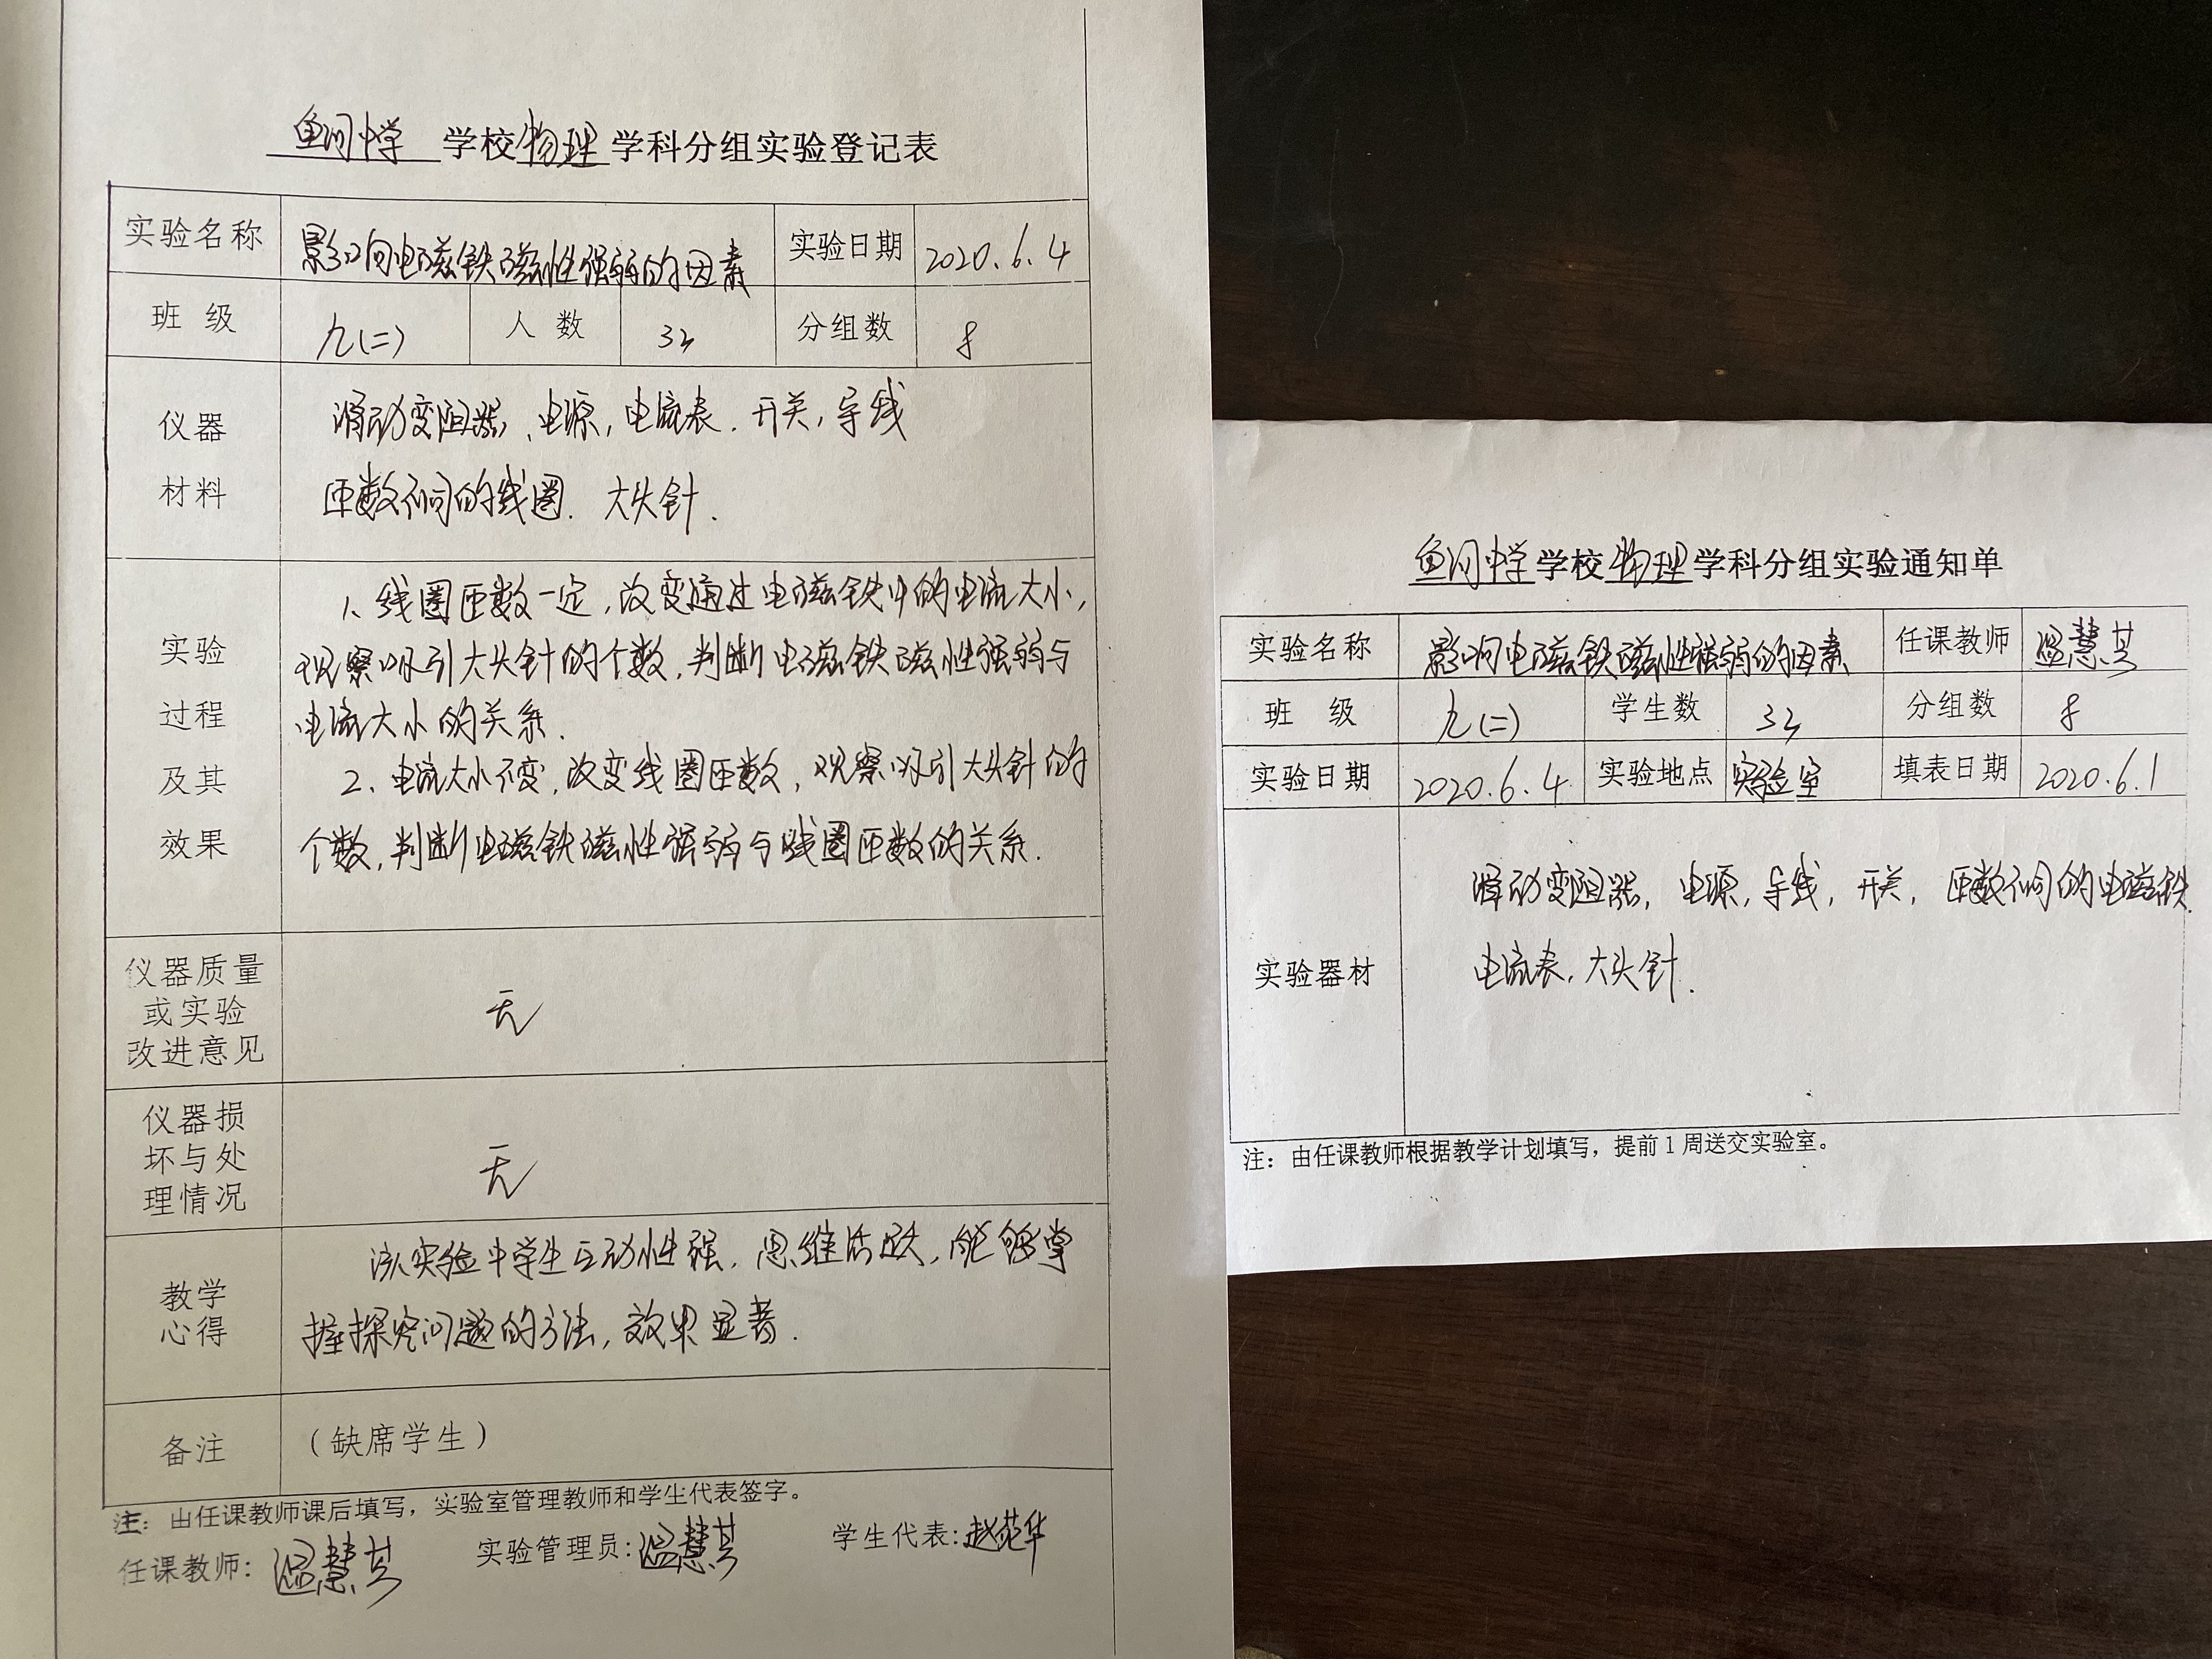 鱼河中学 学校物理学科分组实验登记表
实验名称 影响电磁铁磁性强弱的因素 实验日期 2020.6.4
班 级 九(二) 人 数 32 分组数 8
仪器
材料
滑动变阻器、电源,电流表.开关,导线
匝数不同的线圈.大头针.
实验
过程
及其
效果
1、线圈匝数一定,改变通过电磁铁中的电流大小,
观察吸引大头针的个数,判断电磁铁磁性强弱与
电流大小的关系.
2、电流大小不变,改变线圈匝数,观察吸引大头针的
个数,判断电磁铁磁性强弱与线圈匝数的关系.
仪器质量
或实验
改进意见
无
仪器损
坏与处
理情况
无
教学
心得
该实验中学生互动性强,思维活跃,能够掌
握探究问题的方法,效果显著.
备注 (缺席学生)
注:由任课教师课后填写,实验室管理教师和学生代表签字。
任课教师: 温慧 实验管理员:温慧 学生代表:赵华
鱼河中学学校物理学科分组实验通知单
实验名称 影响电磁铁磁性强弱的因素 任课教师 温慧
班 级 九(二) 学生数 32 分组数 8
实验日期 2020.6.4 实验地点 实验室 填表日期 2020.6.1
实验器材
滑动变阻器,电源,导线,开关,匝数不同的电磁铁.
电流表,大头针.
注:由任课教师根据教学计划填写,提前1周送交实验室。